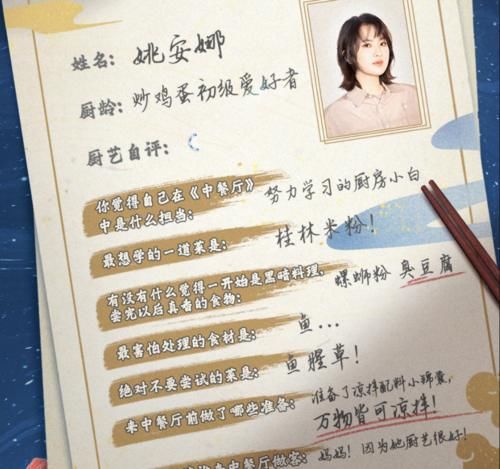 姓名: 姚安娜
厨龄: 炒鸡蛋初级爱好者
厨艺自评:
你觉得自己在《中餐厅》
中是什么担当: 努力学习的厨房小白
最想学的一道菜是: 桂林米粉!
有没有什么觉得一开始是黑暗料理,
尝完以后真香的食物: 螺蛳粉 臭豆腐
最害怕处理的食材是: 鱼...
绝对不要尝试的菜是: 鱼腥草!
来中餐厅前做了哪些准备: 准备了凉拌配料小锦囊,
万物皆可凉拌!
来中餐厅做客: 妈妈! 因为她厨艺很好!